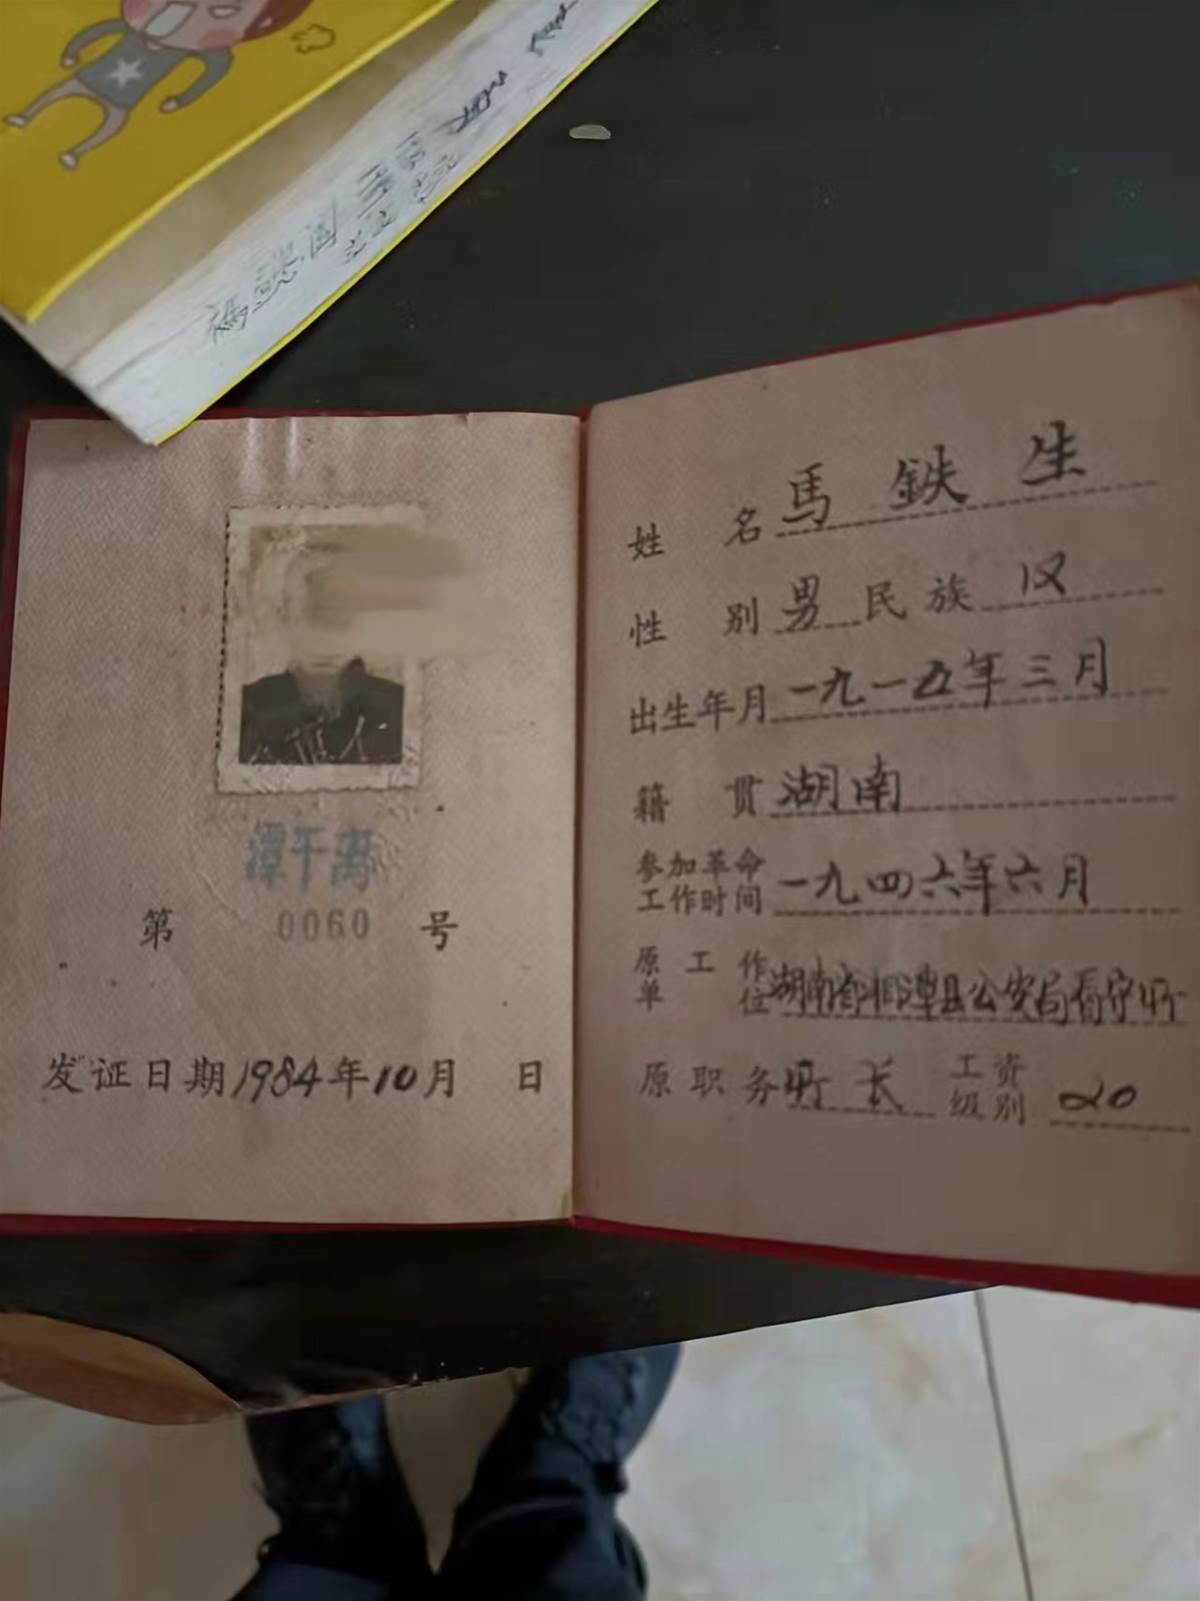 潭干离
第 0060 号
发证日期1984年10月 日
姓名 馬鉄生
性别 男 民族 汉
出生年月 一九一五年三月
籍贯 湖南
参加革命工作时间 一九四六年六月
原工作单位 湖南省湘潭县公安局看守所
原职务 所长 工资级别 20